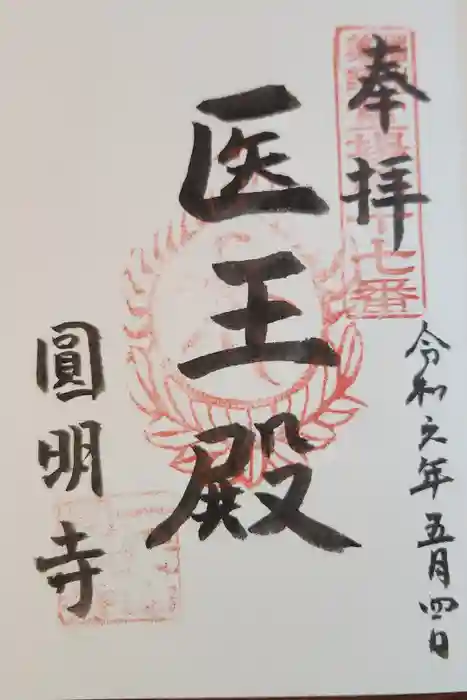 奉拝
七番
令和元年五月四日
医王殿
圓明寺